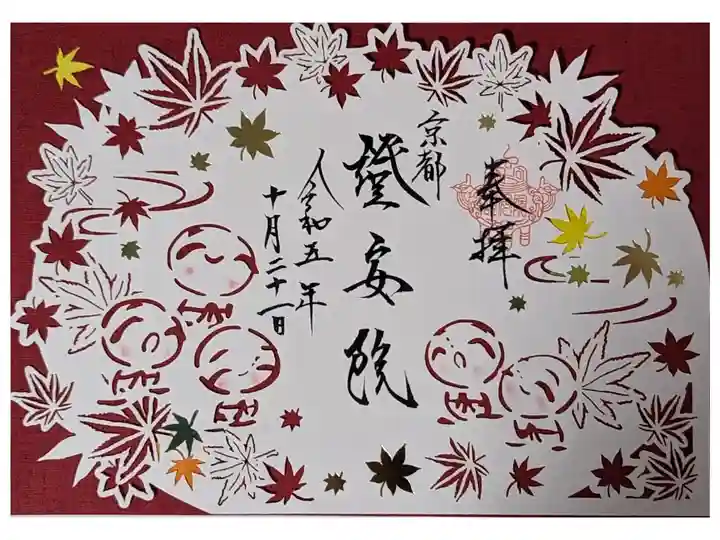 奉拝
京都
證安院
令和五年
十月二十一日